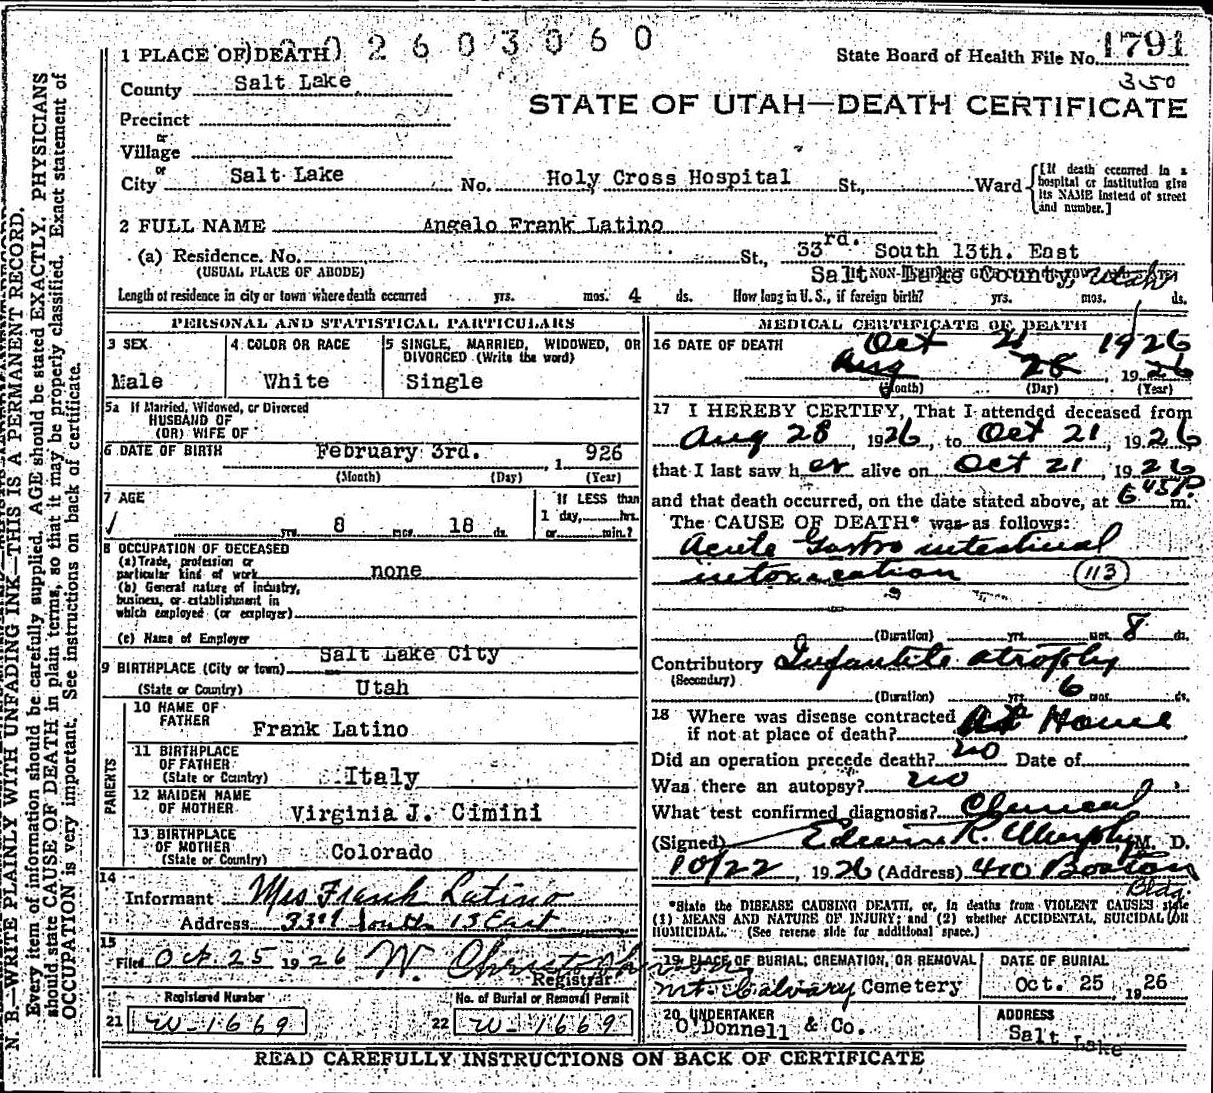 1 PLACE OF DEATH
002603060
State Board of Health File No. 1791
County Salt Lake
350
STATE OF UTAH—DEATH CERTIFICATE
Precinct
or
Village
or
City Salt Lake No. Holy Cross Hospital St., Ward
[If death occurred in a hospital or institution give its NAME instead of street and number.]
2 FULL NAME Angelo Frank Latino
(a) Residence. No. St., 33rd. South 13th. East
(USUAL PLACE OF ABODE) Salt Lake County, Utah
Length of residence in city or town where death occurred yrs. mos. 4 ds. How long in U. S., if foreign birth? yrs. mos. ds.
PERSONAL AND STATISTICAL PARTICULARS
3 SEX
Male
4 COLOR OR RACE
White
5 SINGLE, MARRIED, WIDOWED, OR
DIVORCED (Write the word)
Single
5a If Married, Widowed, or Divorced
HUSBAND OF
(OR) WIFE OF
6 DATE OF BIRTH February 3rd. , 1 926
(Month) (Day) (Year)
7 AGE
yrs. 8 mos. 18 ds.
If LESS than
1 day, hrs.
or min.?
8 OCCUPATION OF DECEASED
(a) Trade, profession or
particular kind of work none
(b) General nature of industry,
business, or establishment in
which employed (or employer)
(c) Name of Employer
9 BIRTHPLACE (City or town) Salt Lake City
(State or Country) Utah
PARENTS
10 NAME OF
FATHER Frank Latino
11 BIRTHPLACE
OF FATHER
(State or Country) Italy
12 MAIDEN NAME
OF MOTHER Virginia J. Cimini
13 BIRTHPLACE
OF MOTHER
(State or Country) Colorado
14
Informant Mrs Frank Latino
Address 33rd South 13 East
15
Filed Oct 25 1926 W. Christopherson
Registrar
Registered Number
21 W-1669
No. of Burial or Removal Permit
22 W-1669
MEDICAL CERTIFICATE OF DEATH
16 DATE OF DEATH Oct 21 1926
Aug 28, 1926
(Month) (Day) (Year)
17 I HEREBY CERTIFY, That I attended deceased from
Aug 28, 1926, to Oct 21, 1926
that I last saw her alive on Oct 21, 1926
and that death occurred, on the date stated above, at 645P. m.
The CAUSE OF DEATH* was as follows:
Acute Gastro intestinal
intoxacation (113)
(Duration) yrs. mos. 8 ds.
Contributory Infantile atrophy
(Secondary)
(Duration) yrs. 6 mos. ds.
18 Where was disease contracted
if not at place of death? At Home
Did an operation precede death? no Date of
Was there an autopsy? no
What test confirmed diagnosis? Clinical
(Signed) Edwin R. Murphy, M. D.
10/22, 1926 (Address) 410 Boston
Bldg.
*State the DISEASE CAUSING DEATH, or, in deaths from VIOLENT CAUSES state
(1) MEANS AND NATURE OF INJURY; and (2) whether ACCIDENTAL, SUICIDAL OR
HOMICIDAL. (See reverse side for additional space.)
19 PLACE OF BURIAL, CREMATION, OR REMOVAL
Mt. Calvary Cemetery
DATE OF BURIAL
Oct. 25, 1926
20 UNDERTAKER
O'Donnell & Co.
ADDRESS
Salt Lake
READ CAREFULLY INSTRUCTIONS ON BACK OF CERTIFICATE
N. B.—WRITE PLAINLY WITH UNFADING INK—THIS IS A PERMANENT RECORD.
Every item of information should be carefully supplied. AGE should be stated EXACTLY. PHYSICIANS
should state CAUSE OF DEATH in plain terms, so that it may be properly classified. Exact statement of
OCCUPATION is very important. See instructions on back of certificate.